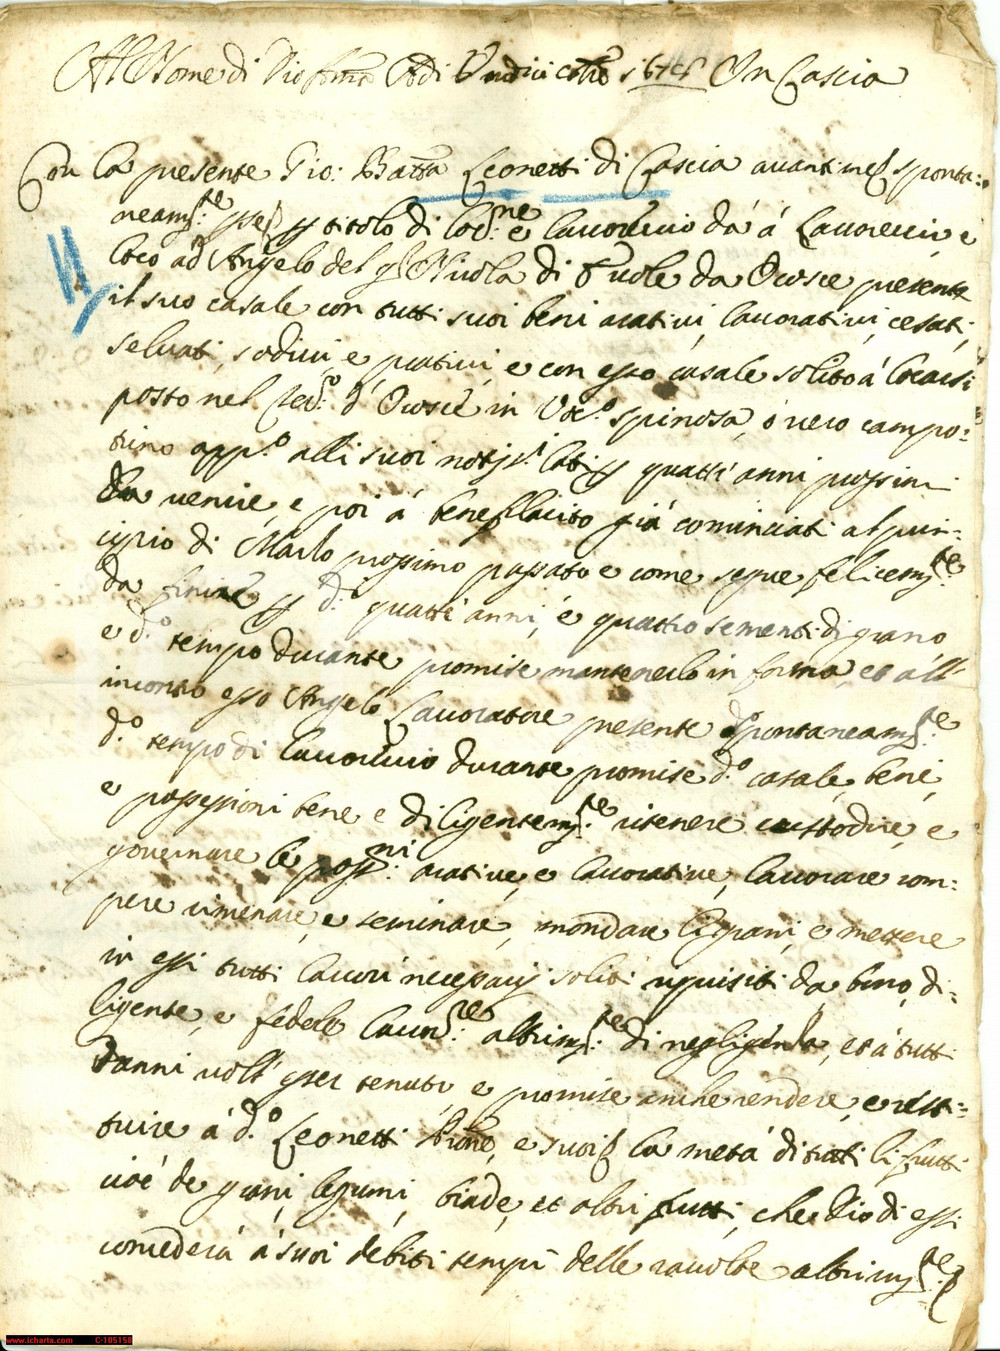 Al Nome di Dio Adi Undici In Cascia
Con la presente Gio: Batta Leonetti di Cascia avanti sponta:
neam.te titolo di loc.ne e lavoreccio dà á Lavoreccio e
loco ad Angelo del Nicola di da Ocosce presente
il suo casale con tutti suoi beni arativi, lavorativi, cesati,
selvati, sodivi, e prativi, e con esso casale solito á locarsi
posto nel d'Ocosce in Voc.o spinosa, ó vero campo:
rino app.o alli suoi quattr' anni prossimi
da venire, e poi á beneplacito giá cominciati al prin=
cipio di Marzo prossimo passato e come segue felicem.te
da finire d.i quattr' anni, e quattro sementi di grano
e d.o tempo durante promise mantenerlo in forma, et all'
incontro esso Angelo Lavoratore presente spontaneam.te
d.o tempo di lavoreccio durante promise d.o casale, beni,
e possessioni bene e diligentem.te ritenere custodire, e
governare le poss.ni arative, e lavorative, lavorare rom=
pere rimenare, e seminare, mondare li grani, e mettere
in essi tutti lavori necessarij soliti requisiti da bono, di=
ligente, e fedele lavor.re altrim.te di negligenza, et á tutti
danni volse esser tenuto, e promise anche rendere, e resti=
tuire á d.o Leonetti Prone, e suoi la metá di tutti li frutti
cioé de grani, legumi, biade, et altri frutti, che Dio di essi
concederá á suoi debiti tempi delle raccolte altrim.te
www.icharta.com C-105158